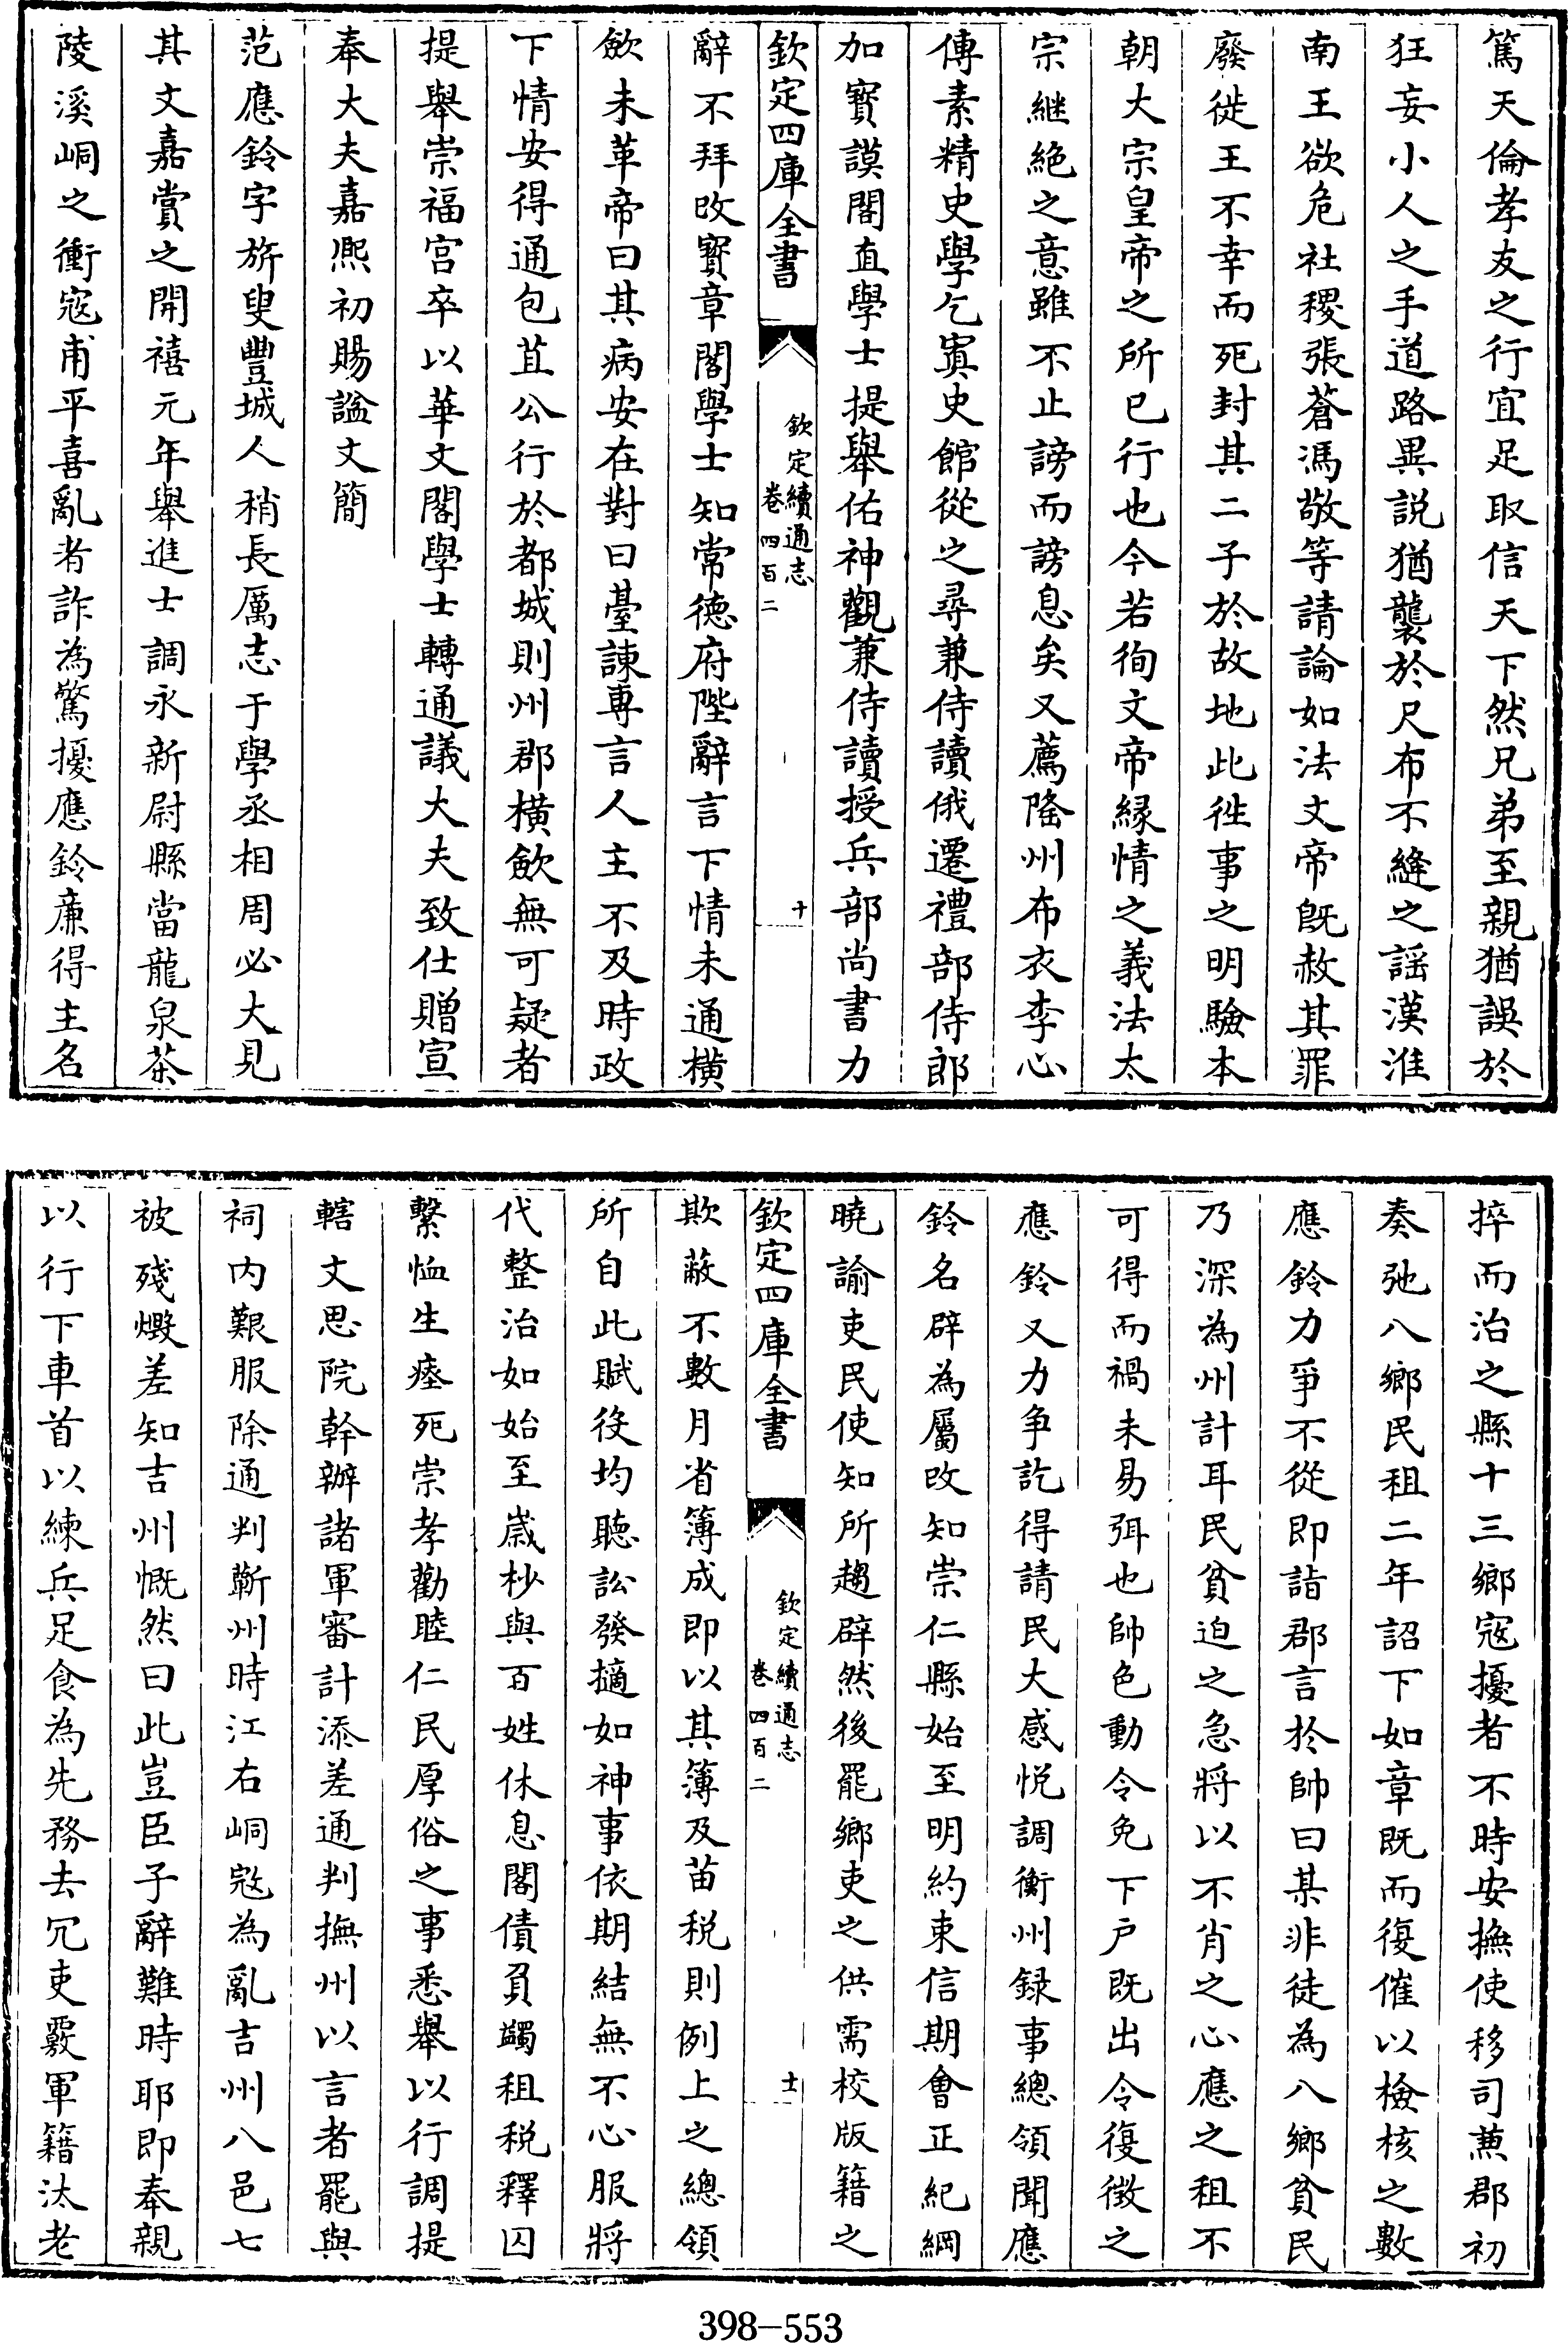 篤天倫孝友之行宜足取信天下然兄弟至親猶誤於
狂妄小人之手道路異説猶襲於尺布不縫之謡漢淮
南王欲危社稷張蒼馮敬等請論如法文帝既赦其罪
廢徙王不幸而死封其二子於故地此徃事之明驗本
朝大宗皇帝之所已行也今若徇文帝縁情之義法太
宗繼絶之意雖不止謗而謗息矣又薦隆州布衣李心
傳素精史學乞寘史館從之尋兼侍讀俄遷禮部侍郎
加寳謨閣直學士提舉佑神觀兼侍讀授兵部尚書力
欽定四庫全書
欽定續通志
卷四百二
十
辭不拜改寳章閣學士知常德府陛辭言下情未通横
歛未革帝曰其病安在對曰臺諫專言人主不及時政
下情安得通包苴公行於都城則州郡横歛無可疑者
提舉崇福宫卒以華文閣學士轉通議大夫致仕贈宣
奉大夫嘉熙初賜諡文簡
范應鈴字旂叟豐城人稍長厲志于學丞相周必大見
其文嘉賞之開禧元年舉進士調永新尉縣當龍泉茶
陵溪峒之衝寇甫平喜亂者詐為驚擾應鈴亷得主名
捽而治之縣十三鄉寇擾者不時安撫使移司兼郡初
奏弛八鄉民租二年詔下如章既而復催以檢核之數
應鈴力爭不從即詣郡言於帥曰某非徒為八鄉貧民
乃深為州計耳民貧迫之急將以不肖之心應之租不
可得而禍未易弭也帥色動令免下户既出令復徴之
應鈴又力争訖得請民大感悦調衡州録事總領聞應
鈴名辟為屬改知崇仁縣始至明約束信期會正紀綱
曉諭吏民使知所趨辟然後罷鄉吏之供需校版籍之
欽定四庫全書
欽定續通志
卷四百二
十一
欺蔽不數月省簿成即以其簿及苗税則例上之總領
所自此賦役均聽訟發擿如神事依期結無不心服將
代整治如始至歳杪與百姓休息閣債負蠲租税釋囚
繫恤生瘞死崇孝勸睦仁民厚俗之事悉舉以行調提
轄文思院幹辦諸軍審計添差通判撫州以言者罷與
祠内艱服除通判蘄州時江右峒寇為亂吉州八邑七
被殘燬差知吉州慨然曰此豈臣子辭難時耶即奉親
以行下車首以練兵足食為先務去冗吏覈軍籍汰老
398－553